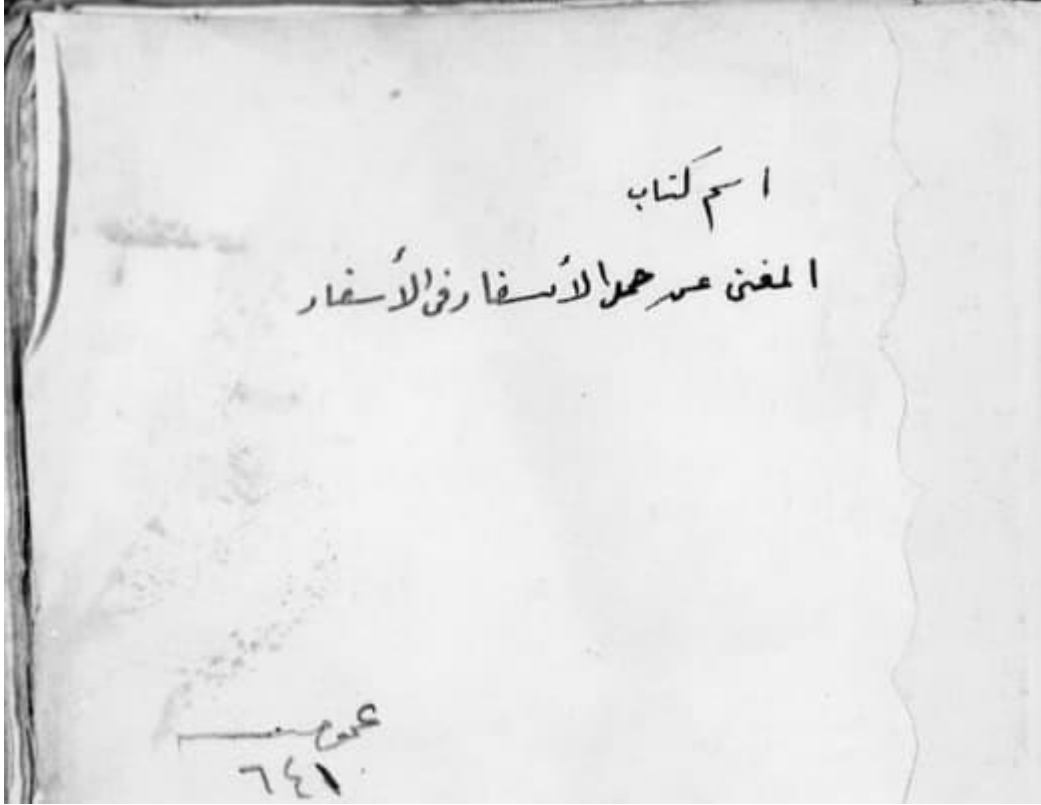 اسم كتاب
المغنى عن حمل الأسفار فى الأسفار
عمومى
٦٤١